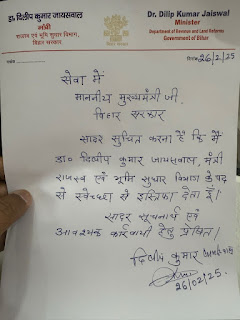 डा. दिलीप कुमार जायसवाल
मंत्री
राजस्व एवं भूमि सुधार विभाग,
बिहार सरकार
Dr. Dilip Kumar Jaiswal
Minister
Department of Revenue and Land Reforms
Government of Bihar
दिनांक 26/2/25
सेवा में
माननीय मुख्यमंत्री जी,
बिहार सरकार
सादर सुचित करना है कि मैं
डा० दिलीप कुमार जायसवाल, मंत्री
राजस्व एवं भूमि सुधार विभाग के पद
से स्वेच्छा से इस्तिफा देता हूँ।
सादर सूचनार्थ एवं
आवश्यक कार्यवाही हेतु प्रेषित।
दिलीप कुमार
26/02/25.